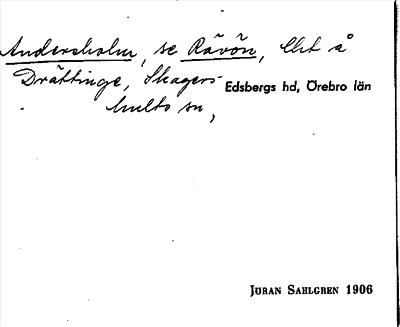 Andersholm, se Råvön, lht å
Drättinge, Skagers-
hults sn,
Edsbergs hd, Örebro län
Jöran Sahlgren 1906